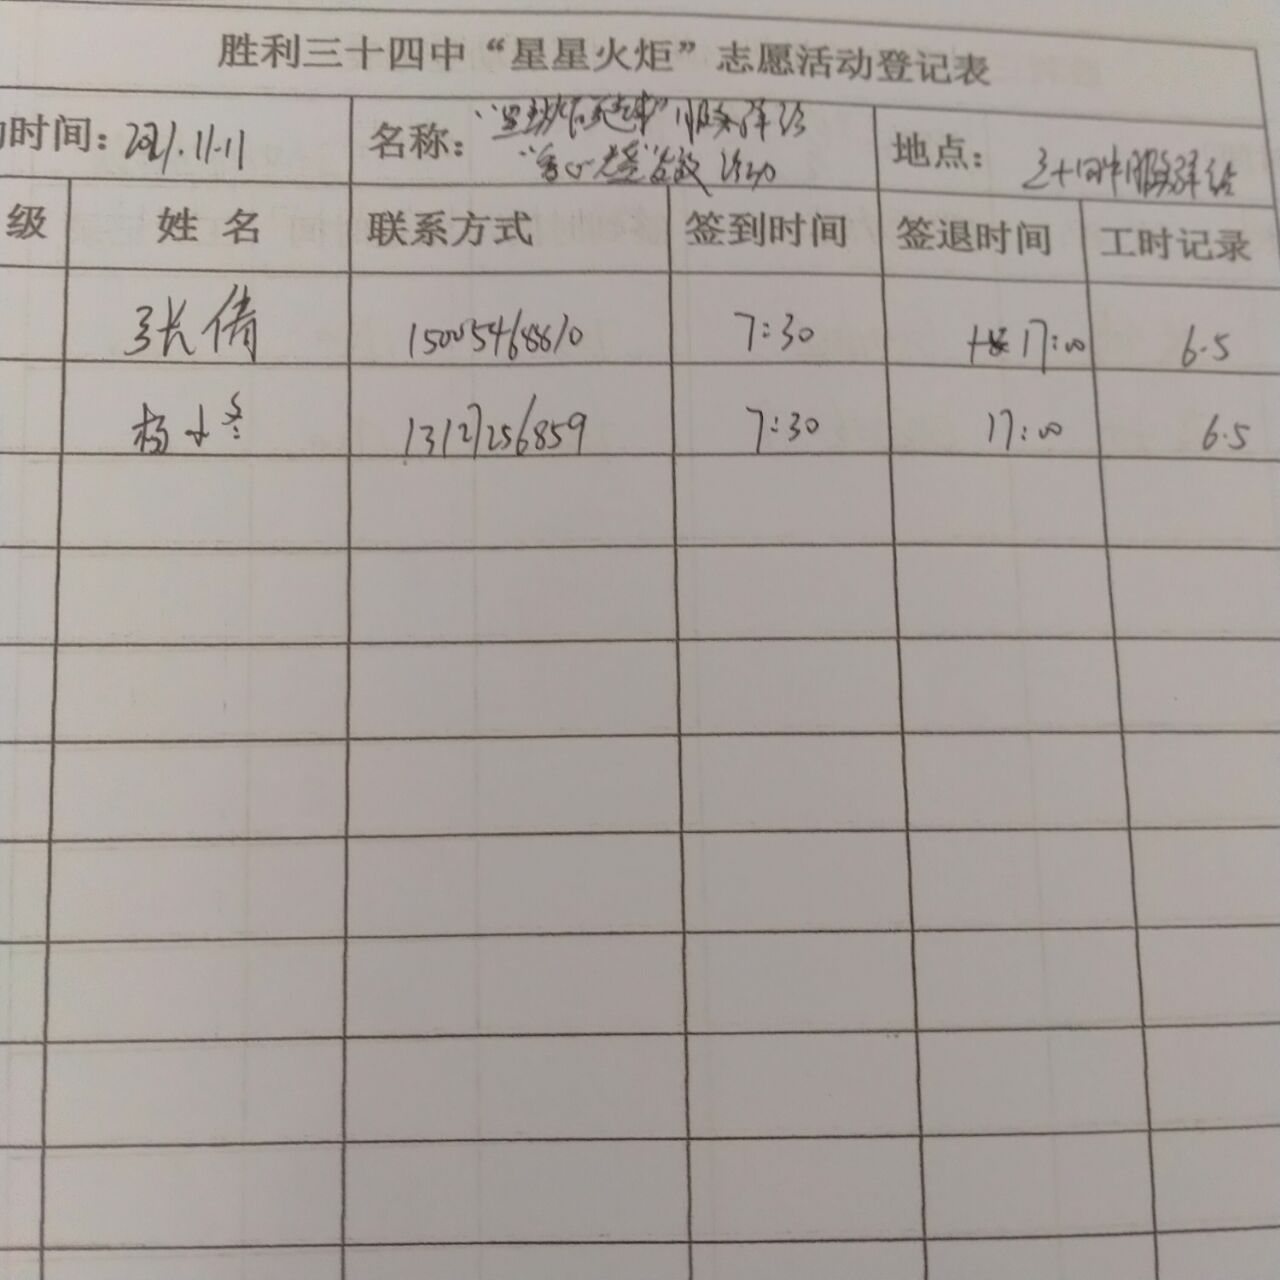 胜利三十四中“星星火炬”志愿活动登记表
时间：2021.11.11
名称：
地点：三十四中服务驿站
级 姓名 联系方式 签到时间 签退时间 工时记录
张倩 15005468810 7:30 17:00 6.5
杨小冬 13127256859 7:30 17:00 6.5